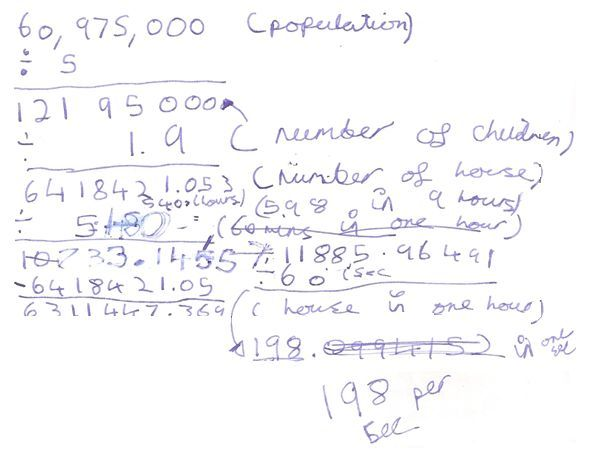 60,975,000 (population)
÷ 5
12195000 (number of children)
÷ 1.9
6418421.053 (number of house)
540.(hours) (598 in 9 hours)
÷ 5480 = (60 mins in one hour)
10733.1455 7.11885.96491
-6418421.05 ÷60 (sec
6311447.369 (house in one hour)
198.0994152 in one sec
198 per
sec